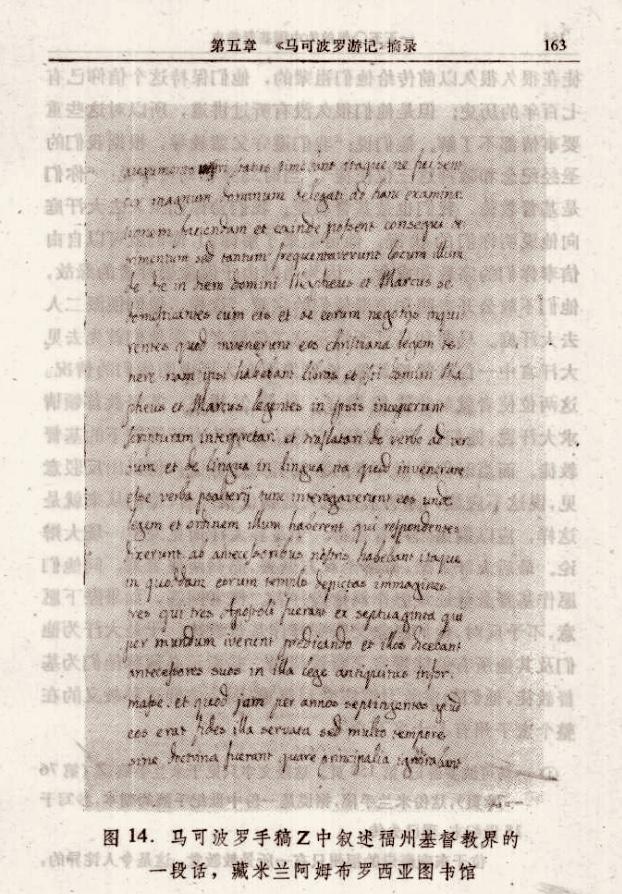 第五章 《马可波罗游记》摘录 163
timebant itaque ne
magnum dominum delegati ad hanc examina
tionem faciendam et exinde possent consequi
sed tantum frequentaverunt locum illum
de die in diem domini Mapheus et Marcus
cum eis et de eorum negotijs inqui
rentes quod invenerunt eos christianam legem te
nere nam ipsi habebant libros et isti domini Ma
pheus et Marcus legentes in ipsis inceperunt
scripturam interpretari et translatari de verbo ad ver
bum et de lingua in lingua ita quod invenerunt
esse verba psalterij tunc interogaverunt eos unde
legem et ordinem illum haberent qui respondentes
dixerunt ab antecessoribus nostris habebant itaque
in quoddam eorum templo depictas immagines
tres qui tres Apostoli fuerant ex septuaginta qui
per mundum iverunt predicando et illos dicebant
antecessores suos in illa lege antiquitus infor
masse. et quod jam per annos septingentos apud
eos erat fides illa servata sed multo tempore
sine doctrina fuerant quare principalia ignorabant
图 14. 马可波罗手稿Z中叙述福州基督教界的
一段话，藏米兰阿姆布罗西亚图书馆